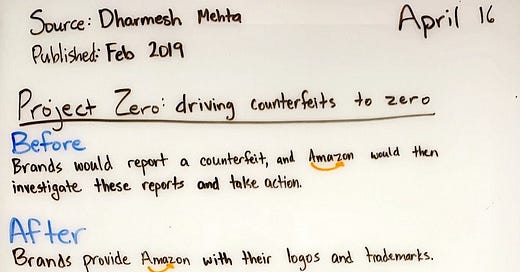 Source: Dharmesh Mehta
April 16
Published: Feb 2019
Project Zero: driving counterfeits to zero
Before
Brands would report a counterfeit, and Amazon would then
investigate these reports and take action.
After
Brands provide Amazon with their logos and trademarks.